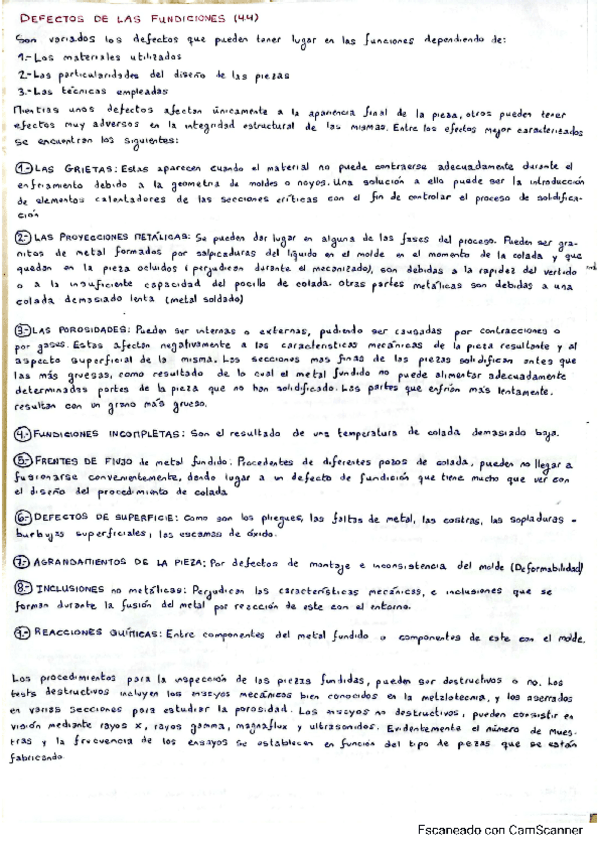 DEFECTOS DE LAS FUNDICIONES (4.4)
Son variados los defectos que pueden tener lugar en las funciones dependiendo de:
1.- Los materiales utilizados
2.- Las particularidades del diseño de las piezas
3.- Las técnicas empleadas
Mientras unos defectos afectan únicamente a la apariencia final de la pieza, otros pueden tener
efectos muy adversos en la integridad estructural de las mismas. Entre los efectos mejor caracterizados
se encuentran los siguientes:
1.- LAS GRIETAS: Estas aparecen cuando el material no puede contraerse adecuadamente durante el
enfriamiento debido a la geometria de moldes o noyos. Una solución a ello puede ser la introducción
de elementos calentadores de las secciones críticas con el fin de controlar el proceso de solidifica-
ción
2.- LAS PROYECCIONES METÁLICAS: Se pueden dar lugar en alguna de las fases del proceso. Pueden ser gra-
nitos de metal formados por salpicaduras del líquido en el molde en el momento de la colada y que
quedan en la pieza ocluidos (perjudican durante el mecanizado), son debidas a la rapidez del vertido
o a la insuficiente capacidad del pocillo de colada. Otras partes metálicas son debidas a una
colada demasiado lenta (metal soldado)
3.- LAS POROSIDADES: Pueden ser internas o externas, pudiendo ser causadas por contracciones o
por gases. Estas afectan negativamente a las características mecánicas de la pieza resultante y al
aspecto superficial de la misma. Las secciones mas finas de las piezas solidifican antes que
las más gruesas, como resultado de lo cual el metal fundido no puede alimentar adecuadamente
determinadas partes de la pieza que no han solidificado. Las partes que enfrían más lentamente.
resultan con un grano más grueso.
4.- FUNDICIONES INCOMPLETAS: Son el resultado de una temperatura de colada demasiado baja.
5.- FRENTES DE FLUJO de metal fundido: Procedentes de diferentes pozos de colada, pueden no llegar a
fusionarse convenientemente, dando lugar a un defecto de fundición que tiene mucho que ver con
el diseño del procedimiento de colada
6.- DEFECTOS DE SUPERFICIE: Como son los pliegues, las faltas de metal, las costras, las sopladuras -
burbujas superficiales, las escamas de óxido.
7.- AGRANDAMIENTOS DE LA PIEZA: Por defectos de montaje e inconsistencia del molde (Deformabilidad)
8.- INCLUSIONES no metálicas: Perjudican las características mecánicas, e inclusiones que se
forman durante la fusión del metal por reacción de este con el entorno.
9.- REACCIONES QUÍMICAS: Entre componentes del metal fundido o componentes de este con el molde.
Los procedimientos para la inspección de las piezas fundidas, pueden ser destructivos o no. Los
tests destructivos incluyen los ensayos mecánicos bien conocidos en la metalotecnia, y los aserrados
en varias secciones para estudiar la porosidad. Los ensayos no destructivos, pueden consistir en
visión mediante rayos x, rayos gamma, magnaflux y ultrasonidos. Evidentemente el número de mues-
tras y la frecuencia de los ensayos se establecen en función del tipo de piezas que se están
fabricando.
Escaneado con CamScanner